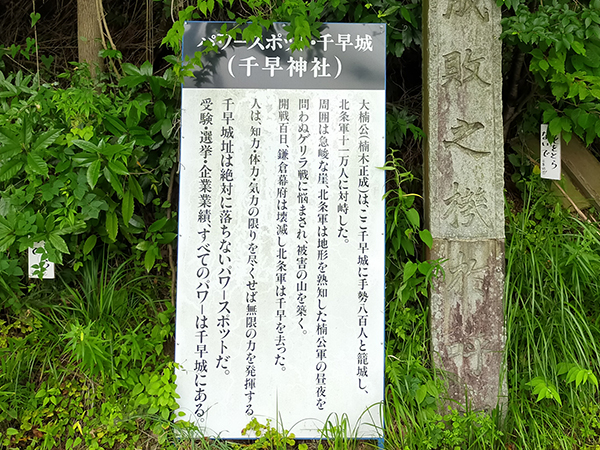 パワースポット・千早城
(千早神社)
大楠公(楠木正成)は、ここ千早城に手勢八百人と籠城し、
北条軍十一万人に対峙した。
周囲は急峻な崖、北条軍は地形を熟知した楠公軍の昼夜を
問わぬゲリラ戦に悩まされ、被害の山を築く。
開戦百日、鎌倉幕府は壊滅し北条軍は千早を去った。
人は、知力・体力・気力の限りを尽くせば無限の力を発揮する
千早城址は絶対に落ちないパワースポットだ。
受験・選挙・企業業績、すべてのパワーは千早城にある。
成敗之機